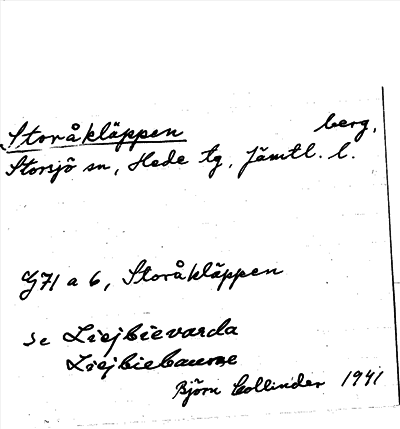 Storåkläppen berg,
Storsjö sn, Hede tg, Jämtl. l.
G71 a 6, Storåkläppen
se Liejbievarda
Liejbiebaurne
Björn Collinder 1941